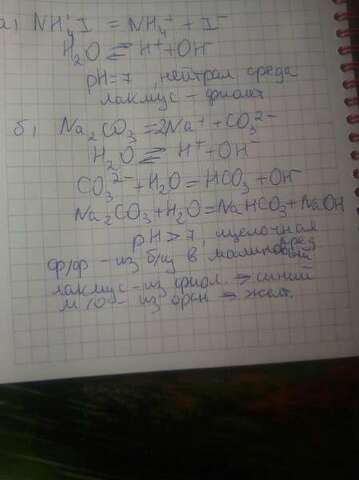 а) NH₄I = NH₄⁺ + I⁻
H₂O ⇄ H⁺ + OH⁻
pH=7, нейтрал среда
лакмус - фиолет
б) Na₂CO₃ = 2Na⁺ + CO₃²⁻
H₂O ⇄ H⁺ + OH⁻
CO₃²⁻ + H₂O = HCO₃ + OH⁻
Na₂CO₃ + H₂O = NaHCO₃ + NaOH
pH > 7, щелочная
сред
ф/ф - из б/ц в малиновый
лакмус - из фиол. → синий
м/о - из оран → желт.